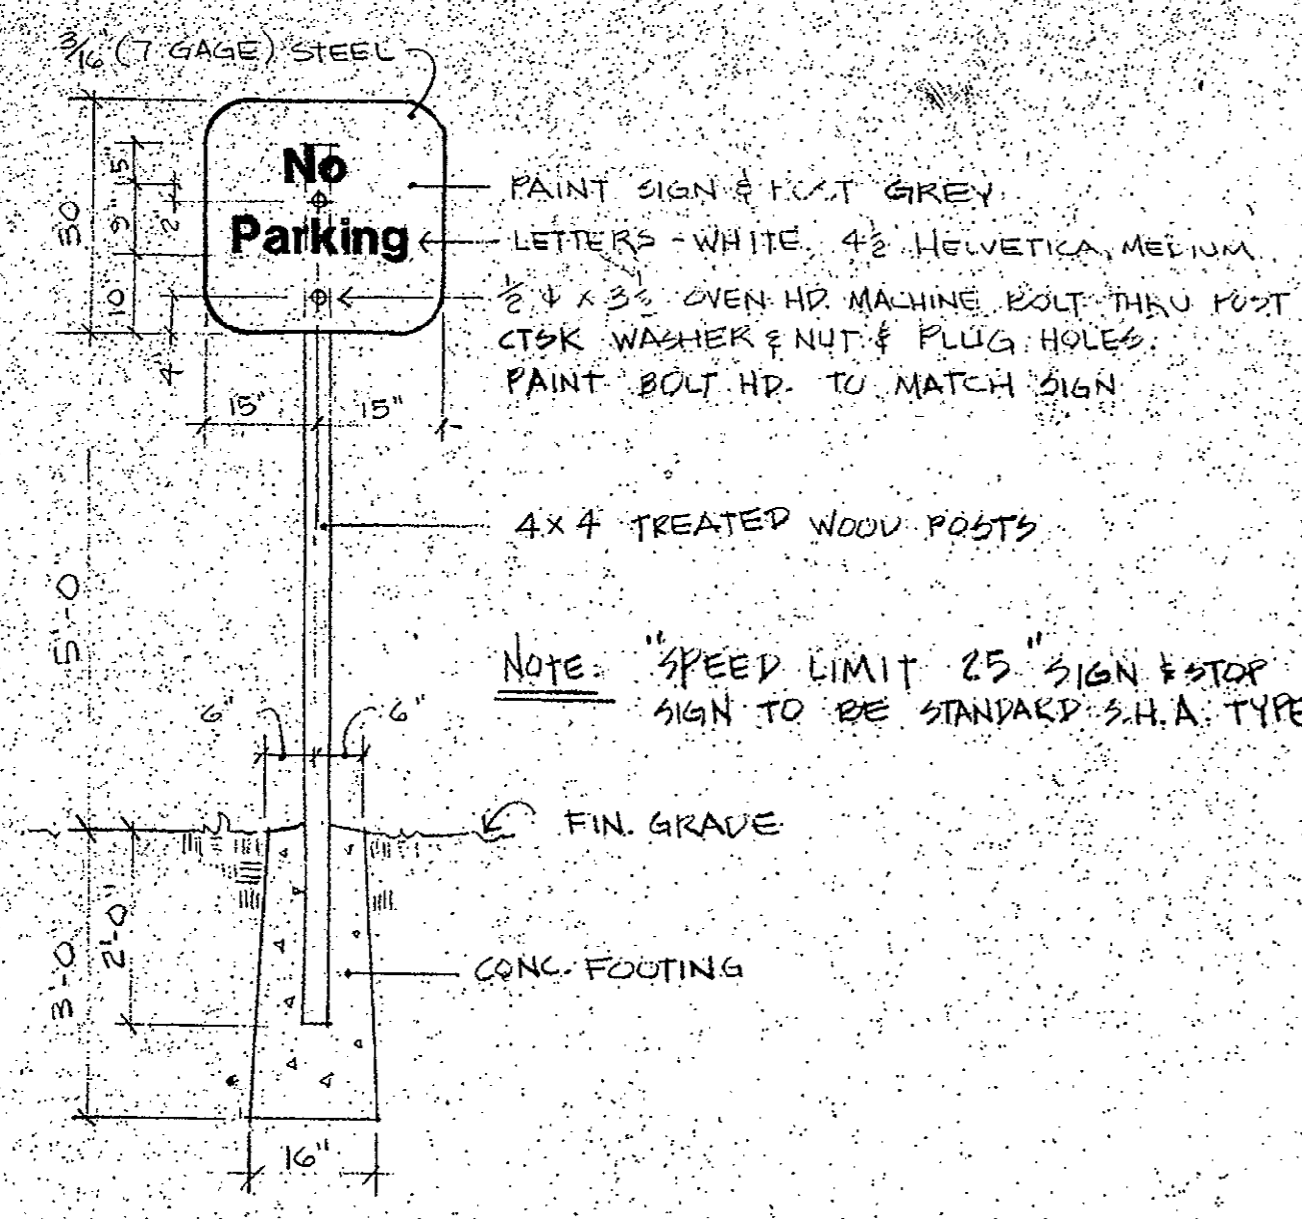 3/16" (7 GAGE) STEEL
No
Parking
PAINT SIGN & POST GREY
LETTERS - WHITE. 4½" HELVETICA MEDIUM
½" ϕ x 3½ OVEN HD. MACHINE BOLT THRU POST
CTSK WASHER & NUT & PLUG HOLES.
PAINT BOLT HD. TO MATCH SIGN
30"
5"
9"
2"
10"
4"
15" 15"
4x4 TREATED WOOD POSTS
5'-0
NOTE: "SPEED LIMIT 25" SIGN & STOP
SIGN TO BE STANDARD S.H.A. TYPE
6" 6"
FIN. GRADE
3'-0
2'-0"
CONC. FOOTING
16"